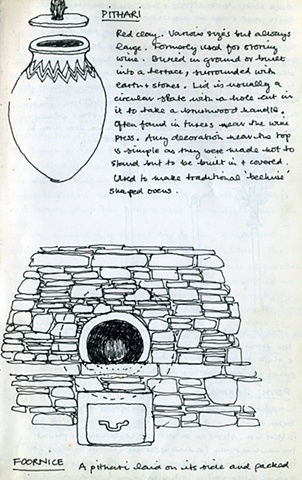 PITHARI
Red clay. Various sizes but always
large. Formerly used for storing
wine. Buried in ground or built
into a terrace, surrounded with
earth + stones. Lid is usually a
circular slate with a hole cut in
it to take a brushwood handle.
Often found in threes near the wine
press. Any decoration near the top
is simple as they were made not to
stand but to be built in + covered.
Used to make traditional 'beehive'
shaped ovens.
FOORNICE
A pithari laid on its side and packed